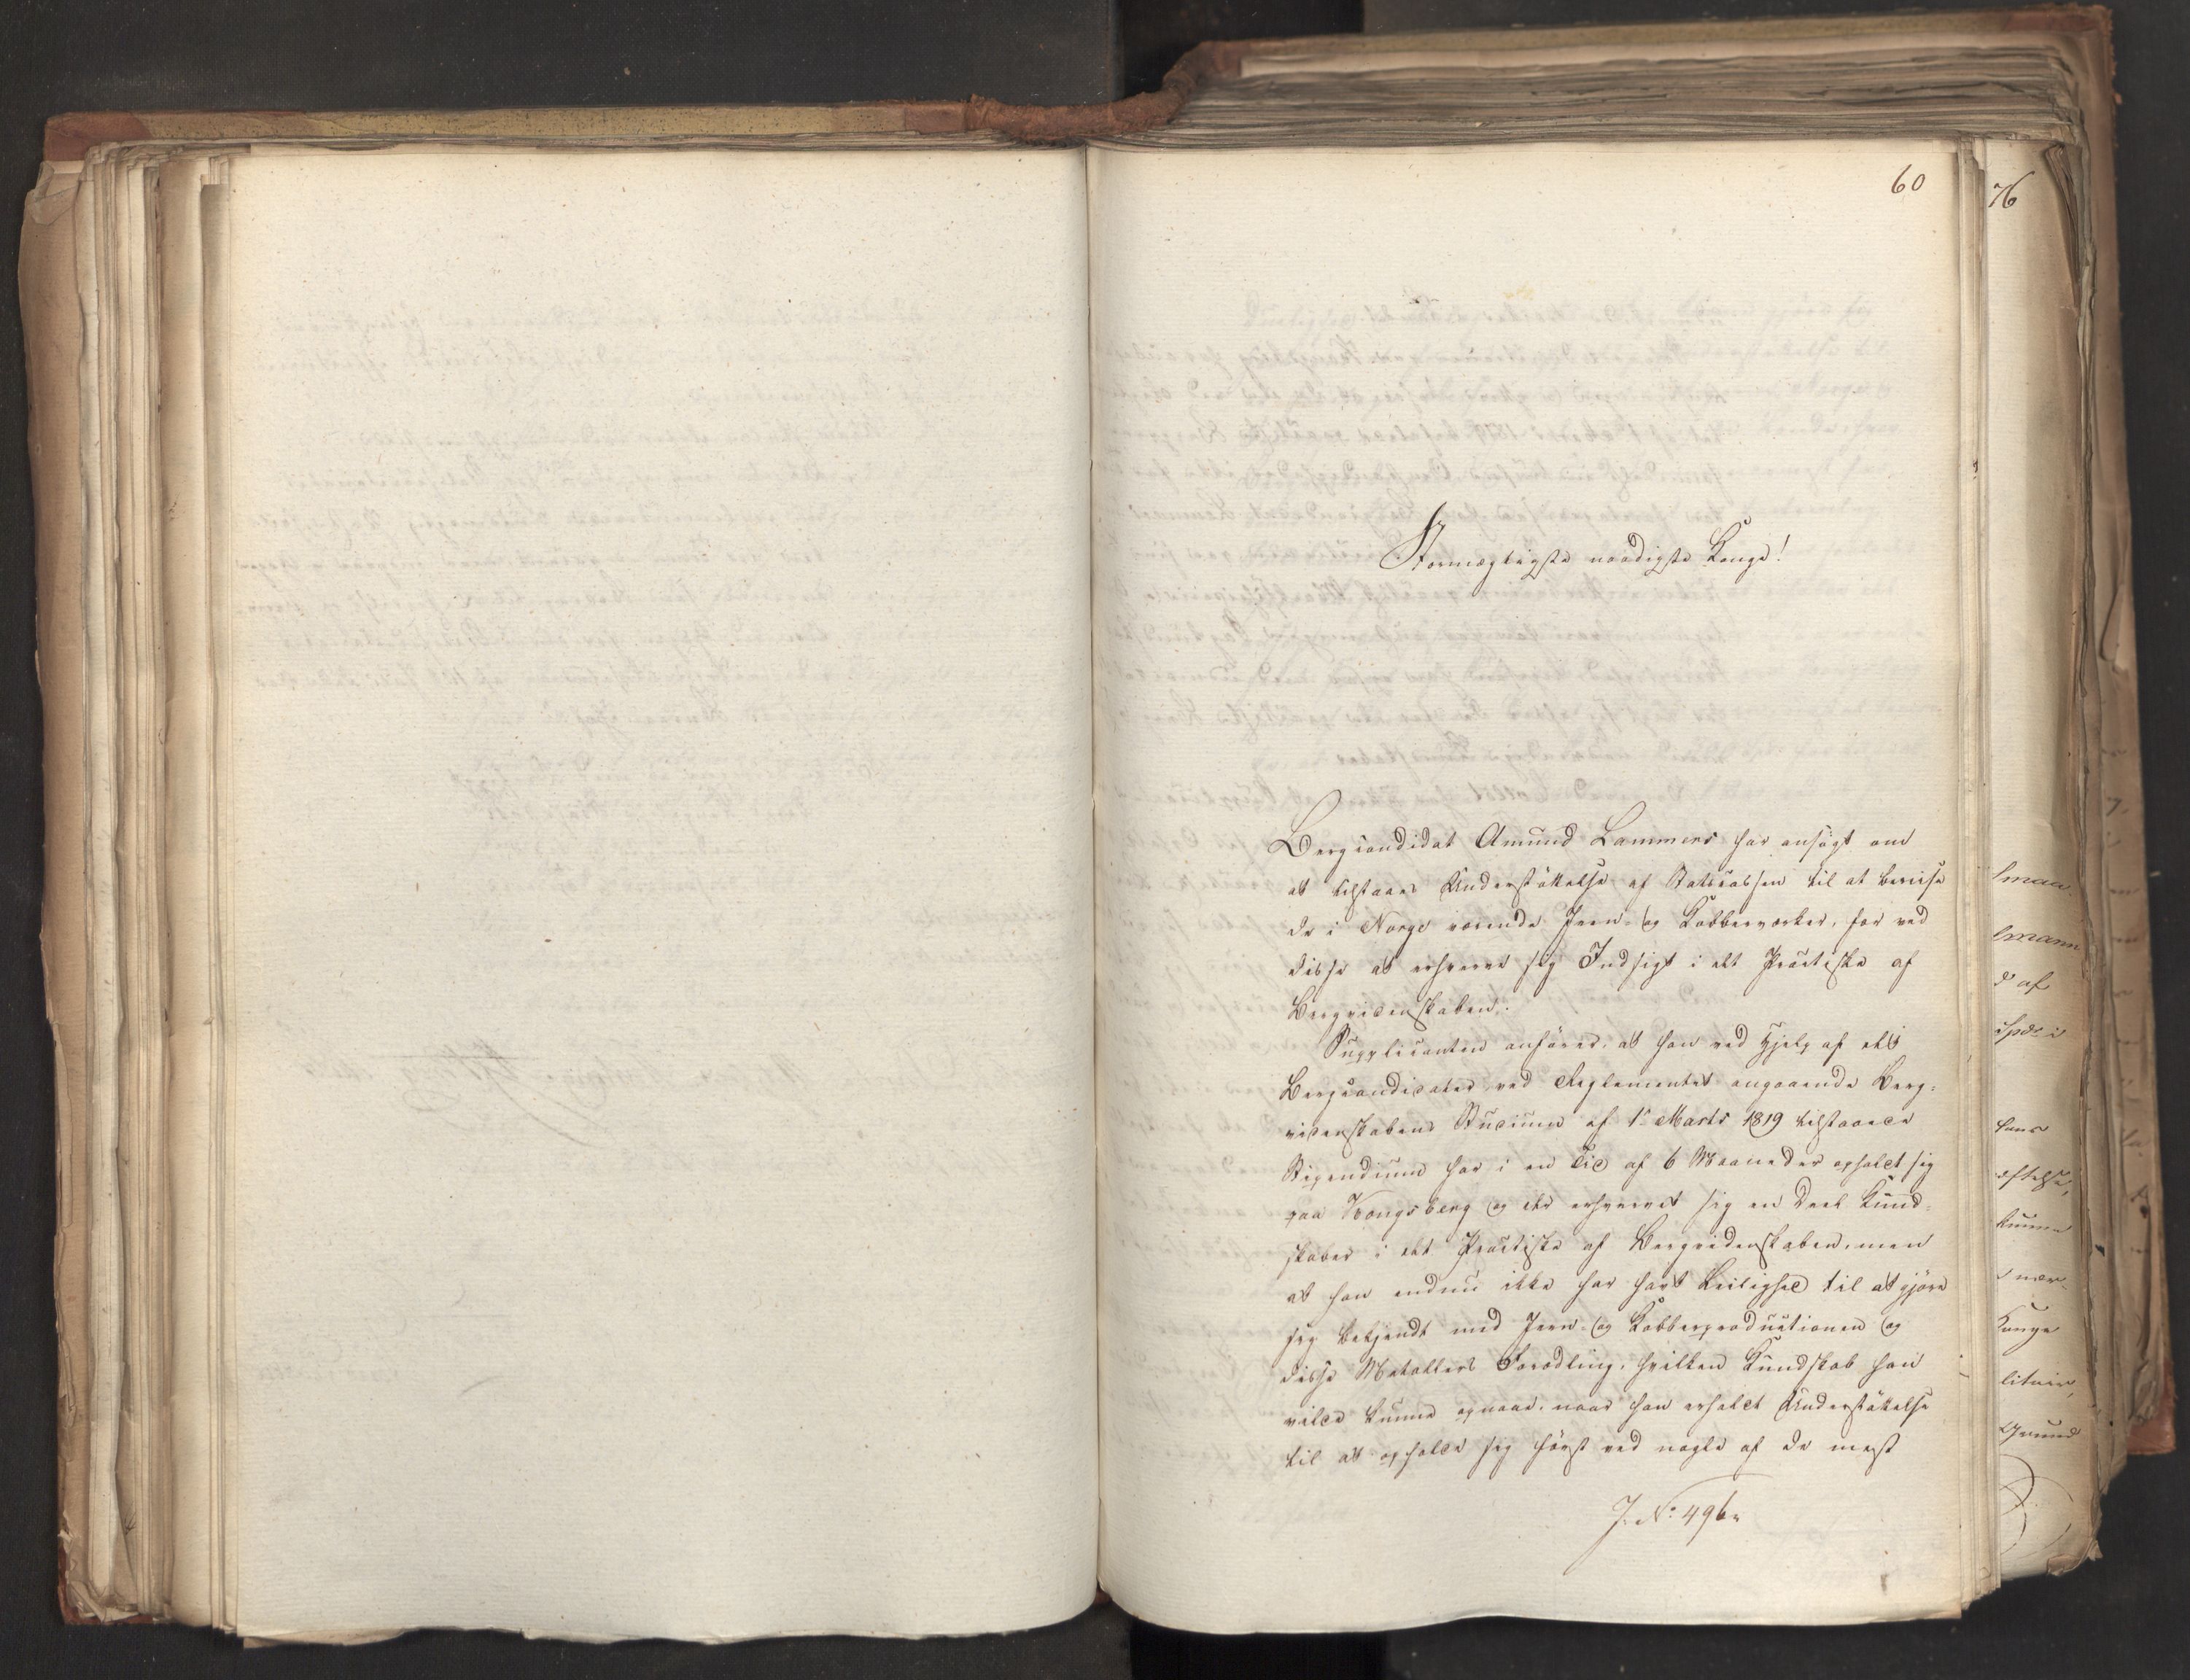 60
Stormægtigste naadigste Konge!
Bergcandidat Amund Lammers har ansøgt om
at tilstaaes Understøttelse af Statscassen til at bereise
de i Norge værende Jern- og Kobberværker, for ved
disse at erhverve sig Indsigt i det Practiske af
Bergvidenskaben.
Supplicanten anfører, at han ved Hjelp af det
Bergcandidater ved Reglementet angaaende Berg-
videnskabens Studium af 1ste Marts 1819 tilstaaede
Stipendium har i en Tid af 6 Maaneder opholdt sig
paa Kongsberg og der erhvervet sig en Deel Kund-
skaber i det Practiske af Bergvidenskaben, men
at han endnu ikke har havt Leilighed til at gjøre
sig bekjendt med Jern- og Kobberproductionen og
disse Metallers Forædling, hvilken Kundskab han
vilde kunne opnaae, naar han erholdt Understøttelse
til at opholde sig først ved nogle af de mest
J. No: 496.
76
Smaa
lmann
d af
kunne
Konge
litair,
Grund